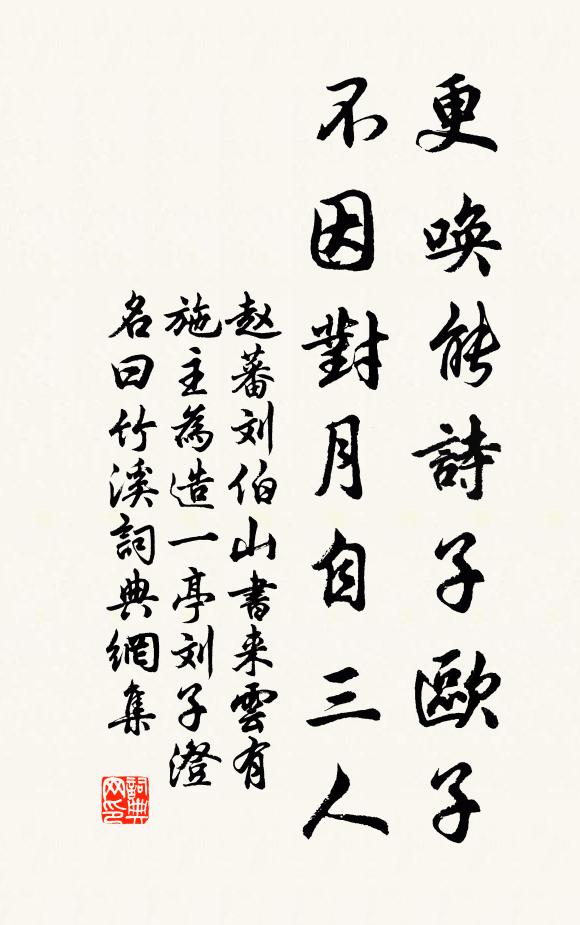 更唤能詩子歐子
不因對月自三人
赵蕃刘伯山書来雲有
施主為造一亭刘子澄
名曰竹溪詞典網集
詞典
网印